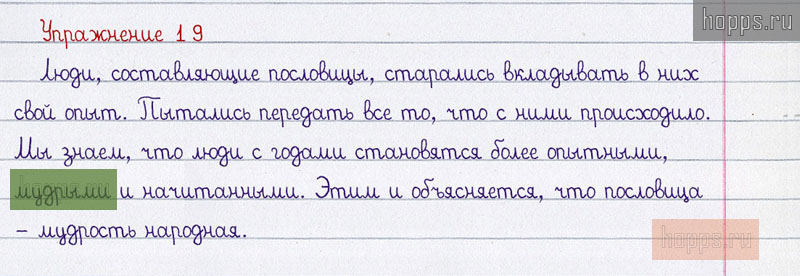 hopps.ru
Упражнение 19
Люди, составляющие пословицы, старались вкладывать в них
свой опыт. Пытались передать все то, что с ними происходило.
Мы знаем, что люди с годами становятся более опытными,
мудрыми и начитанными. Этим и объясняется, что пословица
– мудрость народная.
hopps.ru